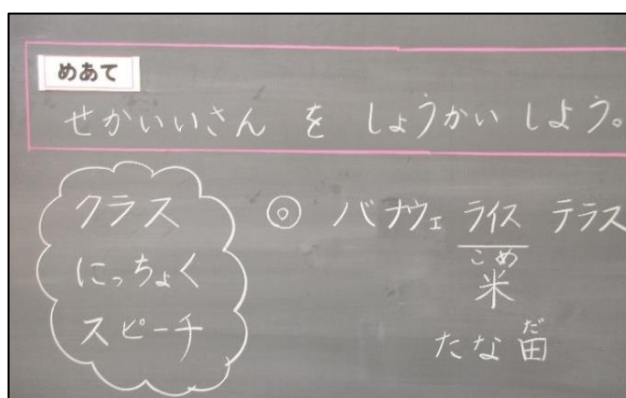 めあて
せかいいさん を しょうかい しよう。
クラス
にっちょく
スピーチ
◎ バナウェ ライス テラス
こめ
米
だ
たな田